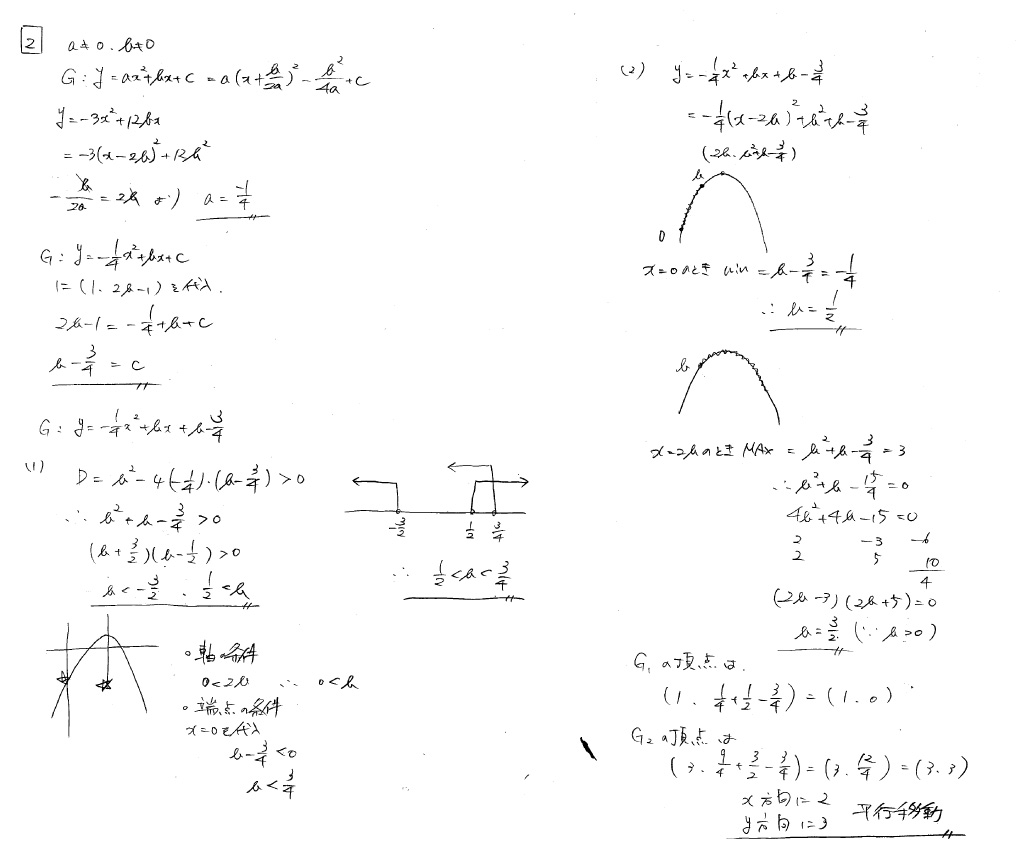 2 a≠0, b≠0
G: y = ax²+bx+c = a(x+b/2a)² - b²/4a + c
y = -3x²+12bx
= -3(x-2b)²+12b²
-b/2a = 2b より a = -1/4
G: y = -1/4x²+bx+c
に (1, 2b-1) を代入.
2b-1 = -1/4+b+c
b-3/4 = c
G: y = -1/4x²+bx+b-3/4
(1) D = b²-4(-1/4)·(b-3/4) > 0
∴ b²+b-3/4 > 0
(b+3/2)(b-1/2) > 0
b < -3/2, 1/2 < b
○ 軸の条件
0 < 2b ∴ 0 < b
○ 端点の条件
x=0を代入
b-3/4 < 0
b < 3/4
-3/2 1/2 3/4
∴ 1/2 < b < 3/4
(2) y = -1/4x²+bx+b-3/4
= -1/4(x-2b)²+b²+b-3/4
(2b, b²+b-3/4)
b
0
x=0のとき min = b-3/4 = -1/4
∴ b = 1/2
b
x=2bのとき MAX = b²+b-3/4 = 3
∴ b²+b-15/4 = 0
4b²+4b-15 = 0
2 -3 -6
2 5 10
4
(2b-3)(2b+5) = 0
b = 3/2 (∵ b>0)
G₁の頂点は.
(1, 1/4+1/2-3/4) = (1, 0)
G₂の頂点は
(3, 9/4+3/2-3/4) = (3, 12/4) = (3, 3)
x方向に2
y方向に3 平行移動